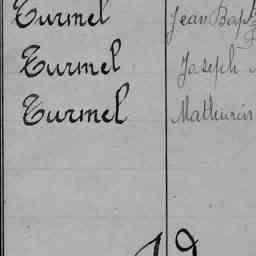 Turmel Jean Bapt
Turmel Joseph
Turmel Mathurin